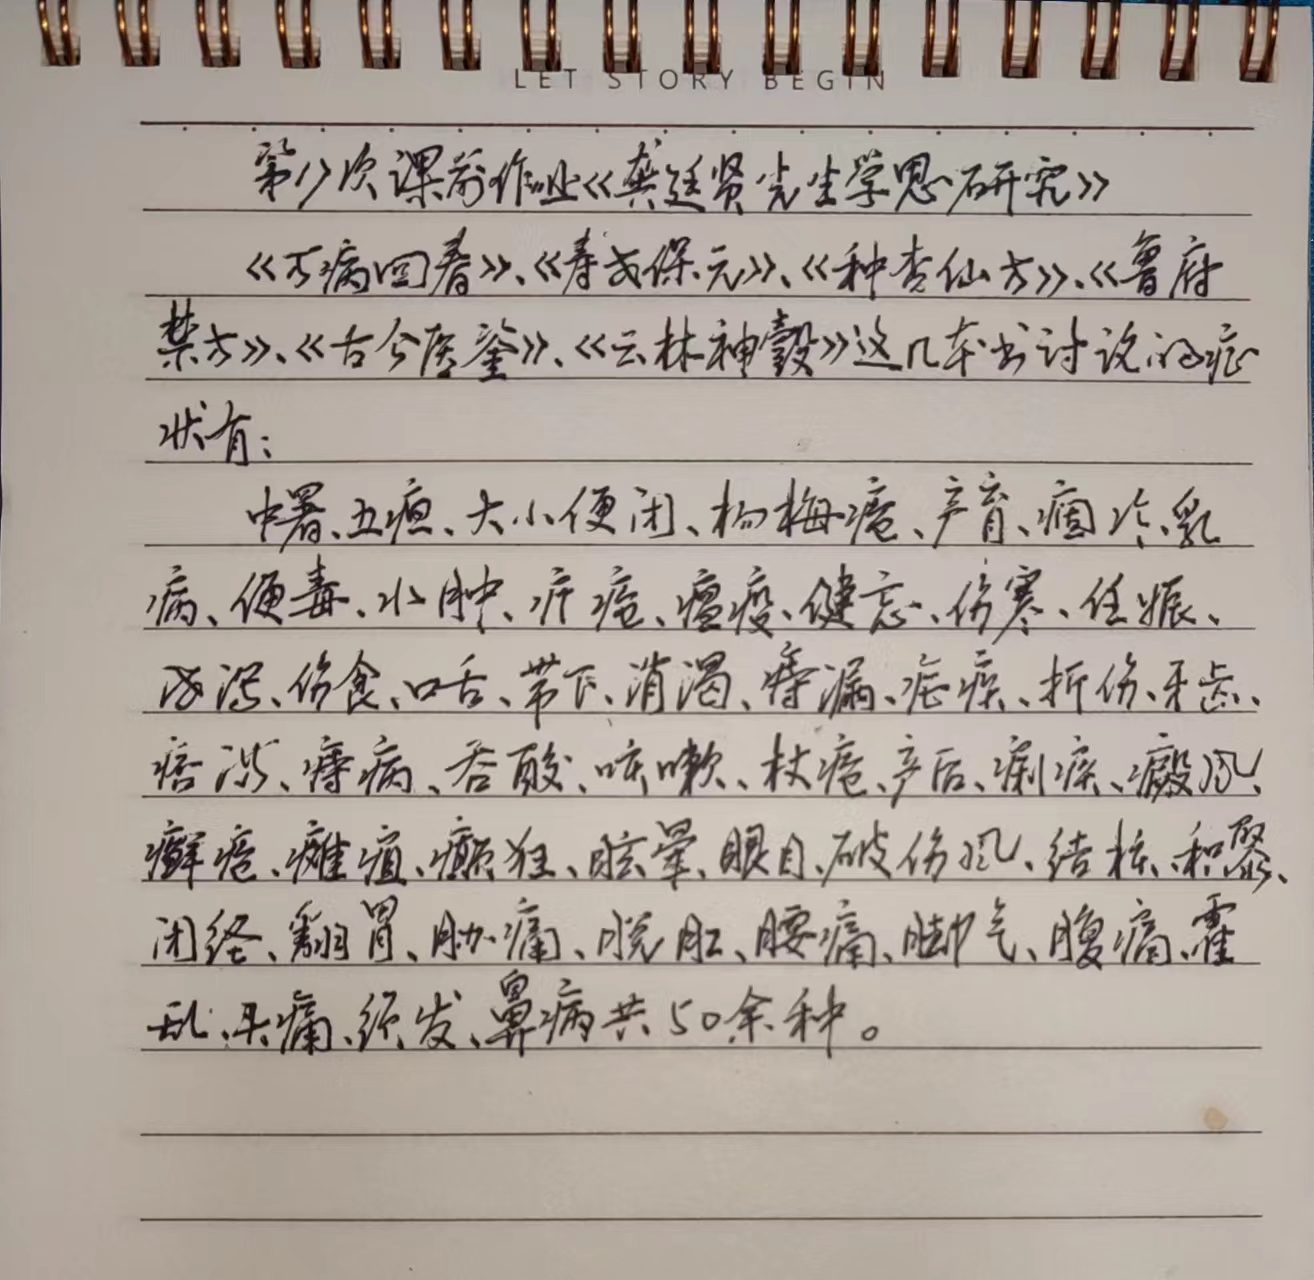 LET STORY BEGIN
第17次课前作业《龚廷贤先生学思研究》
《万病回春》、《寿世保元》、《种杏仙方》、《鲁府
禁方》、《古今医鉴》、《云林神彀》这几本书讨论的症
状有：
中暑、五疸、大小便闭、杨梅疮、产育、痼冷、乳
病、便毒、水肿、疔疮、瘟疫、健忘、伤寒、任娠、
伤食、口舌、带下、消渴、痔漏、折伤、牙齿、
痔病、吞酸、咳嗽、杖疮、产后、癜风、
癣疮、瘫疽、癫狂、眩晕、眼目、破伤风、结核、积聚、
闭经、翻胃、胁痛、脱肛、腰痛、脚气、腹痛、霍
乱、头痛、须发、鼻病共50余种。